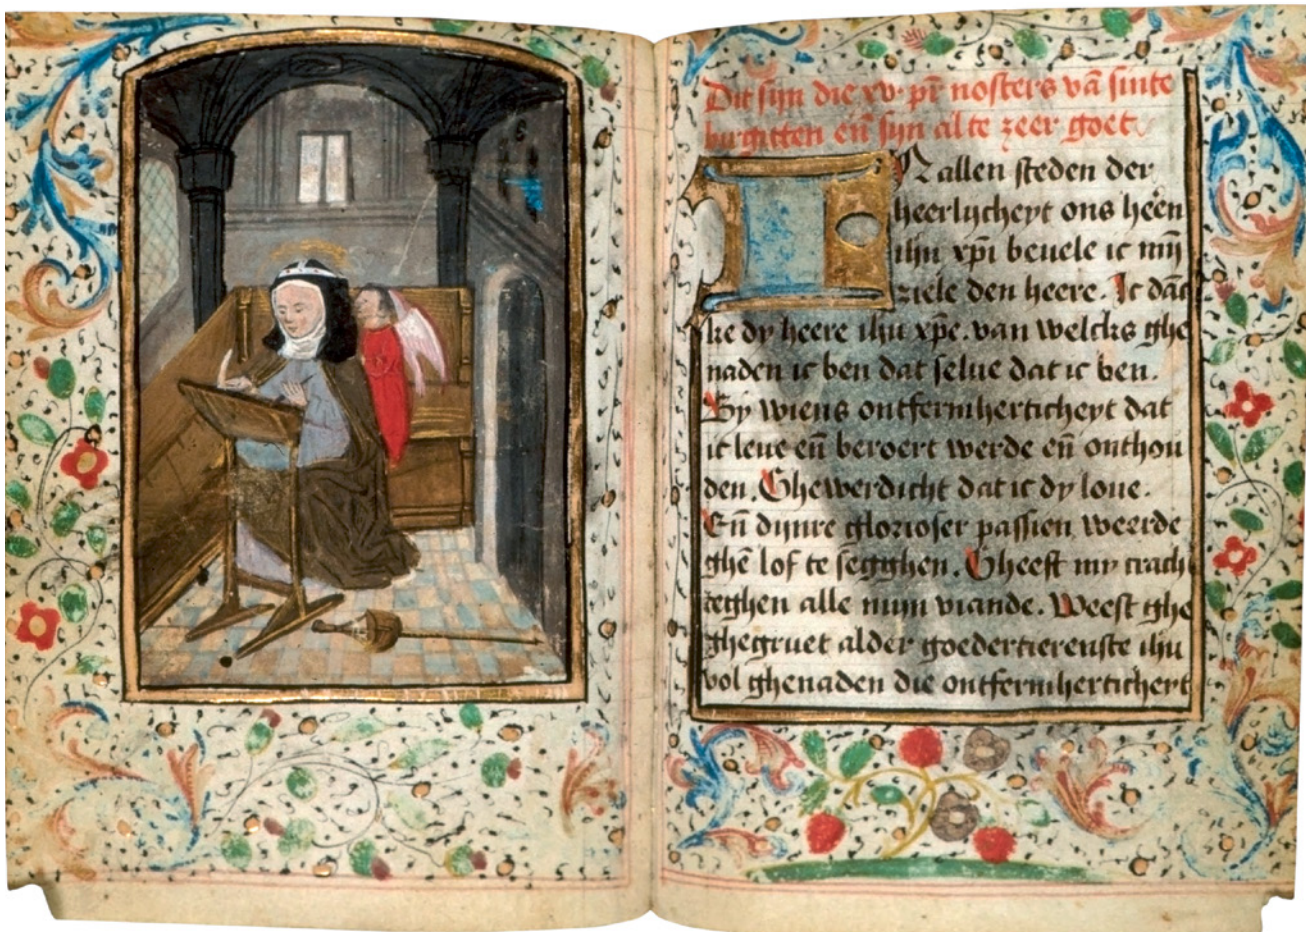 Dit sijn die xv pr̄ nosters vā sinte
burgitten eñ sijn al te zeer goet
IN allen steden der
heerlijcheyt ons heeñ
ihū xp̄i beuele ic mij
ziele den heere. Ic dāc
ke dy heere ihū xp̄e. van welcks ghe
naden ic ben dat selue dat ic ben.
By wiens ontfermherticheyt dat
ic leue eñ beroert werde eñ onthou
den. Ghewerdicht dat ic dy loue.
Eñ dijnre glorioser passien weerde
ghē lof te segghen. Gheeft my cracht
teghen alle mijn viande. Weest ghe
ghegruet alder goedertierenste ihū
vol ghenaden die ontfermhertichert